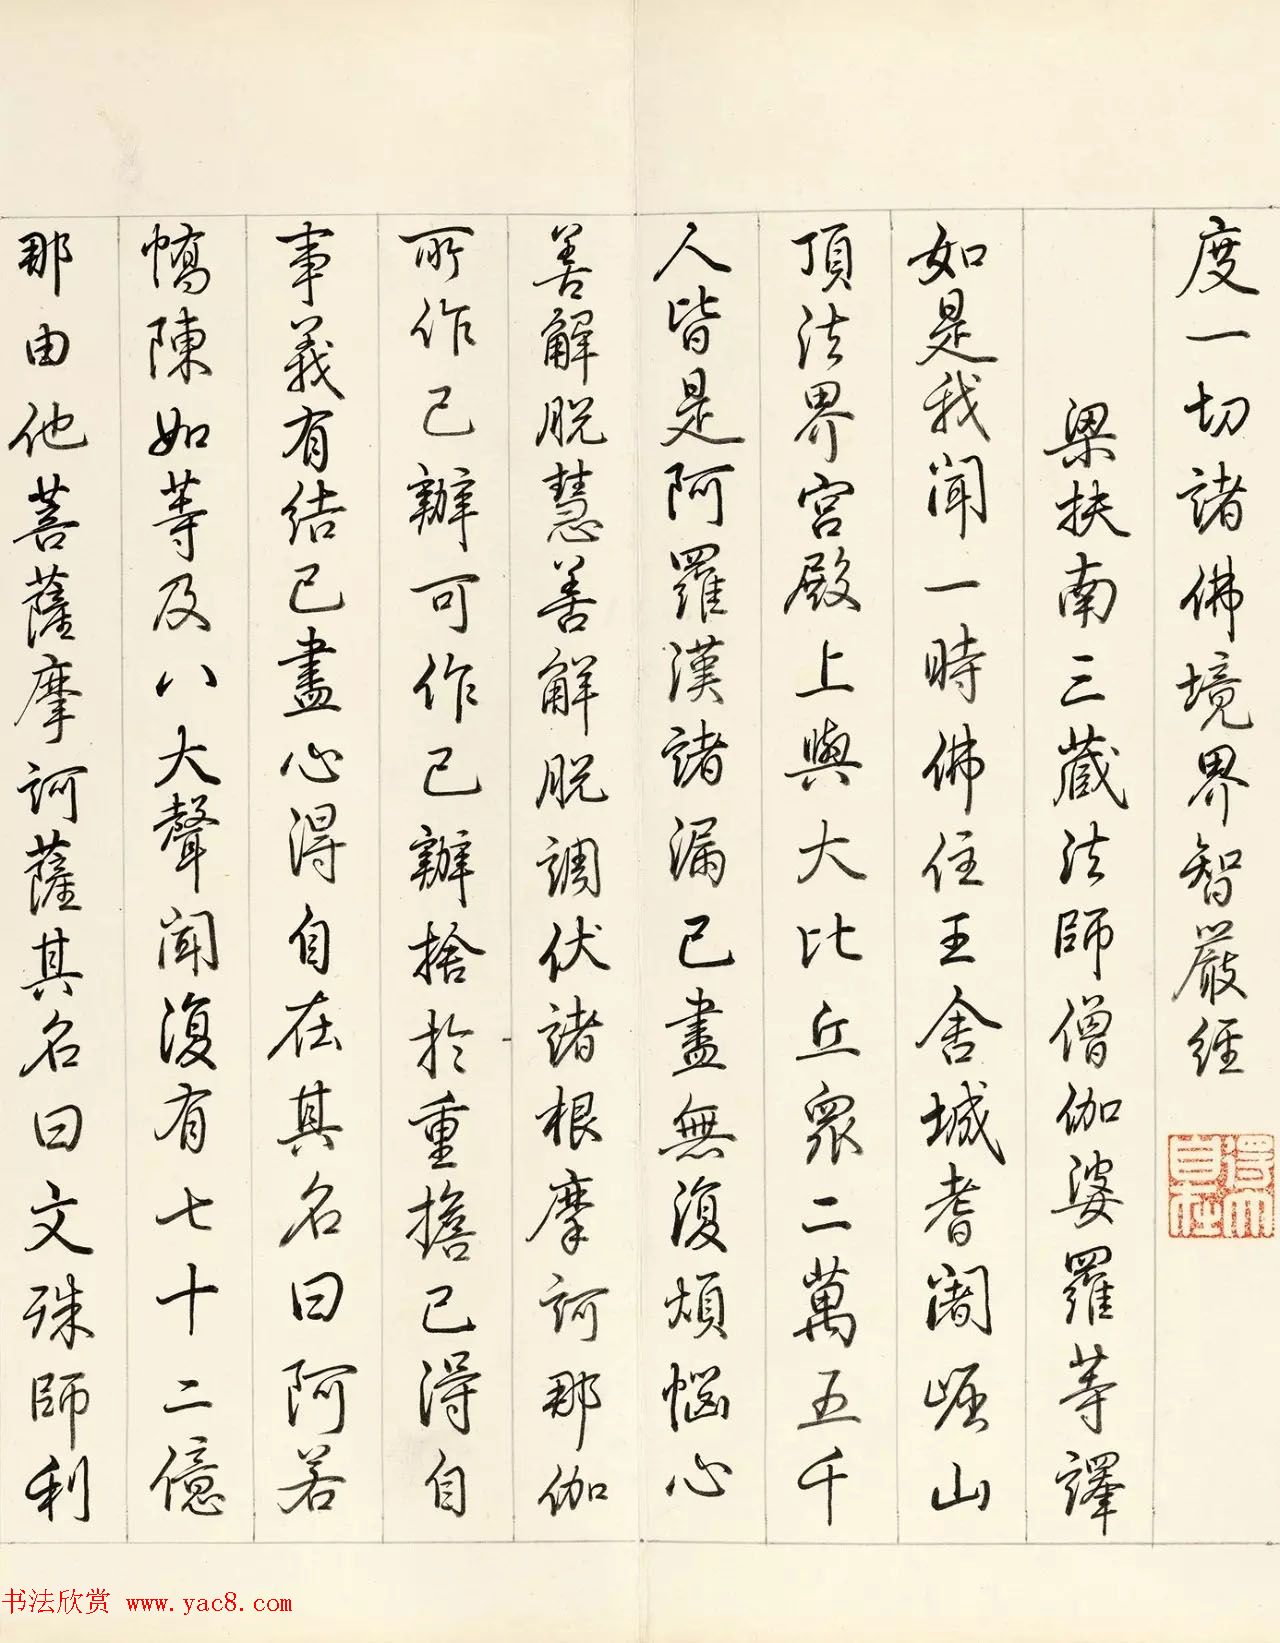 度一切諸佛境界智嚴經
梁扶南三藏法師僧伽婆羅等譯
如是我聞一時佛住王舍城耆闍崛山
頂法界宮殿上與大比丘眾二萬五千
人皆是阿羅漢諸漏已盡無復煩惱心
善解脫慧善解脫調伏諸根摩訶那伽
所作已辦可作已辦捨於重擔已得自
事義有結已盡心得自在其名曰阿若
憍陳如等及八大聲聞復有七十二億
那由他菩薩摩訶薩其名曰文殊師利
书法欣赏 www.yac8.com